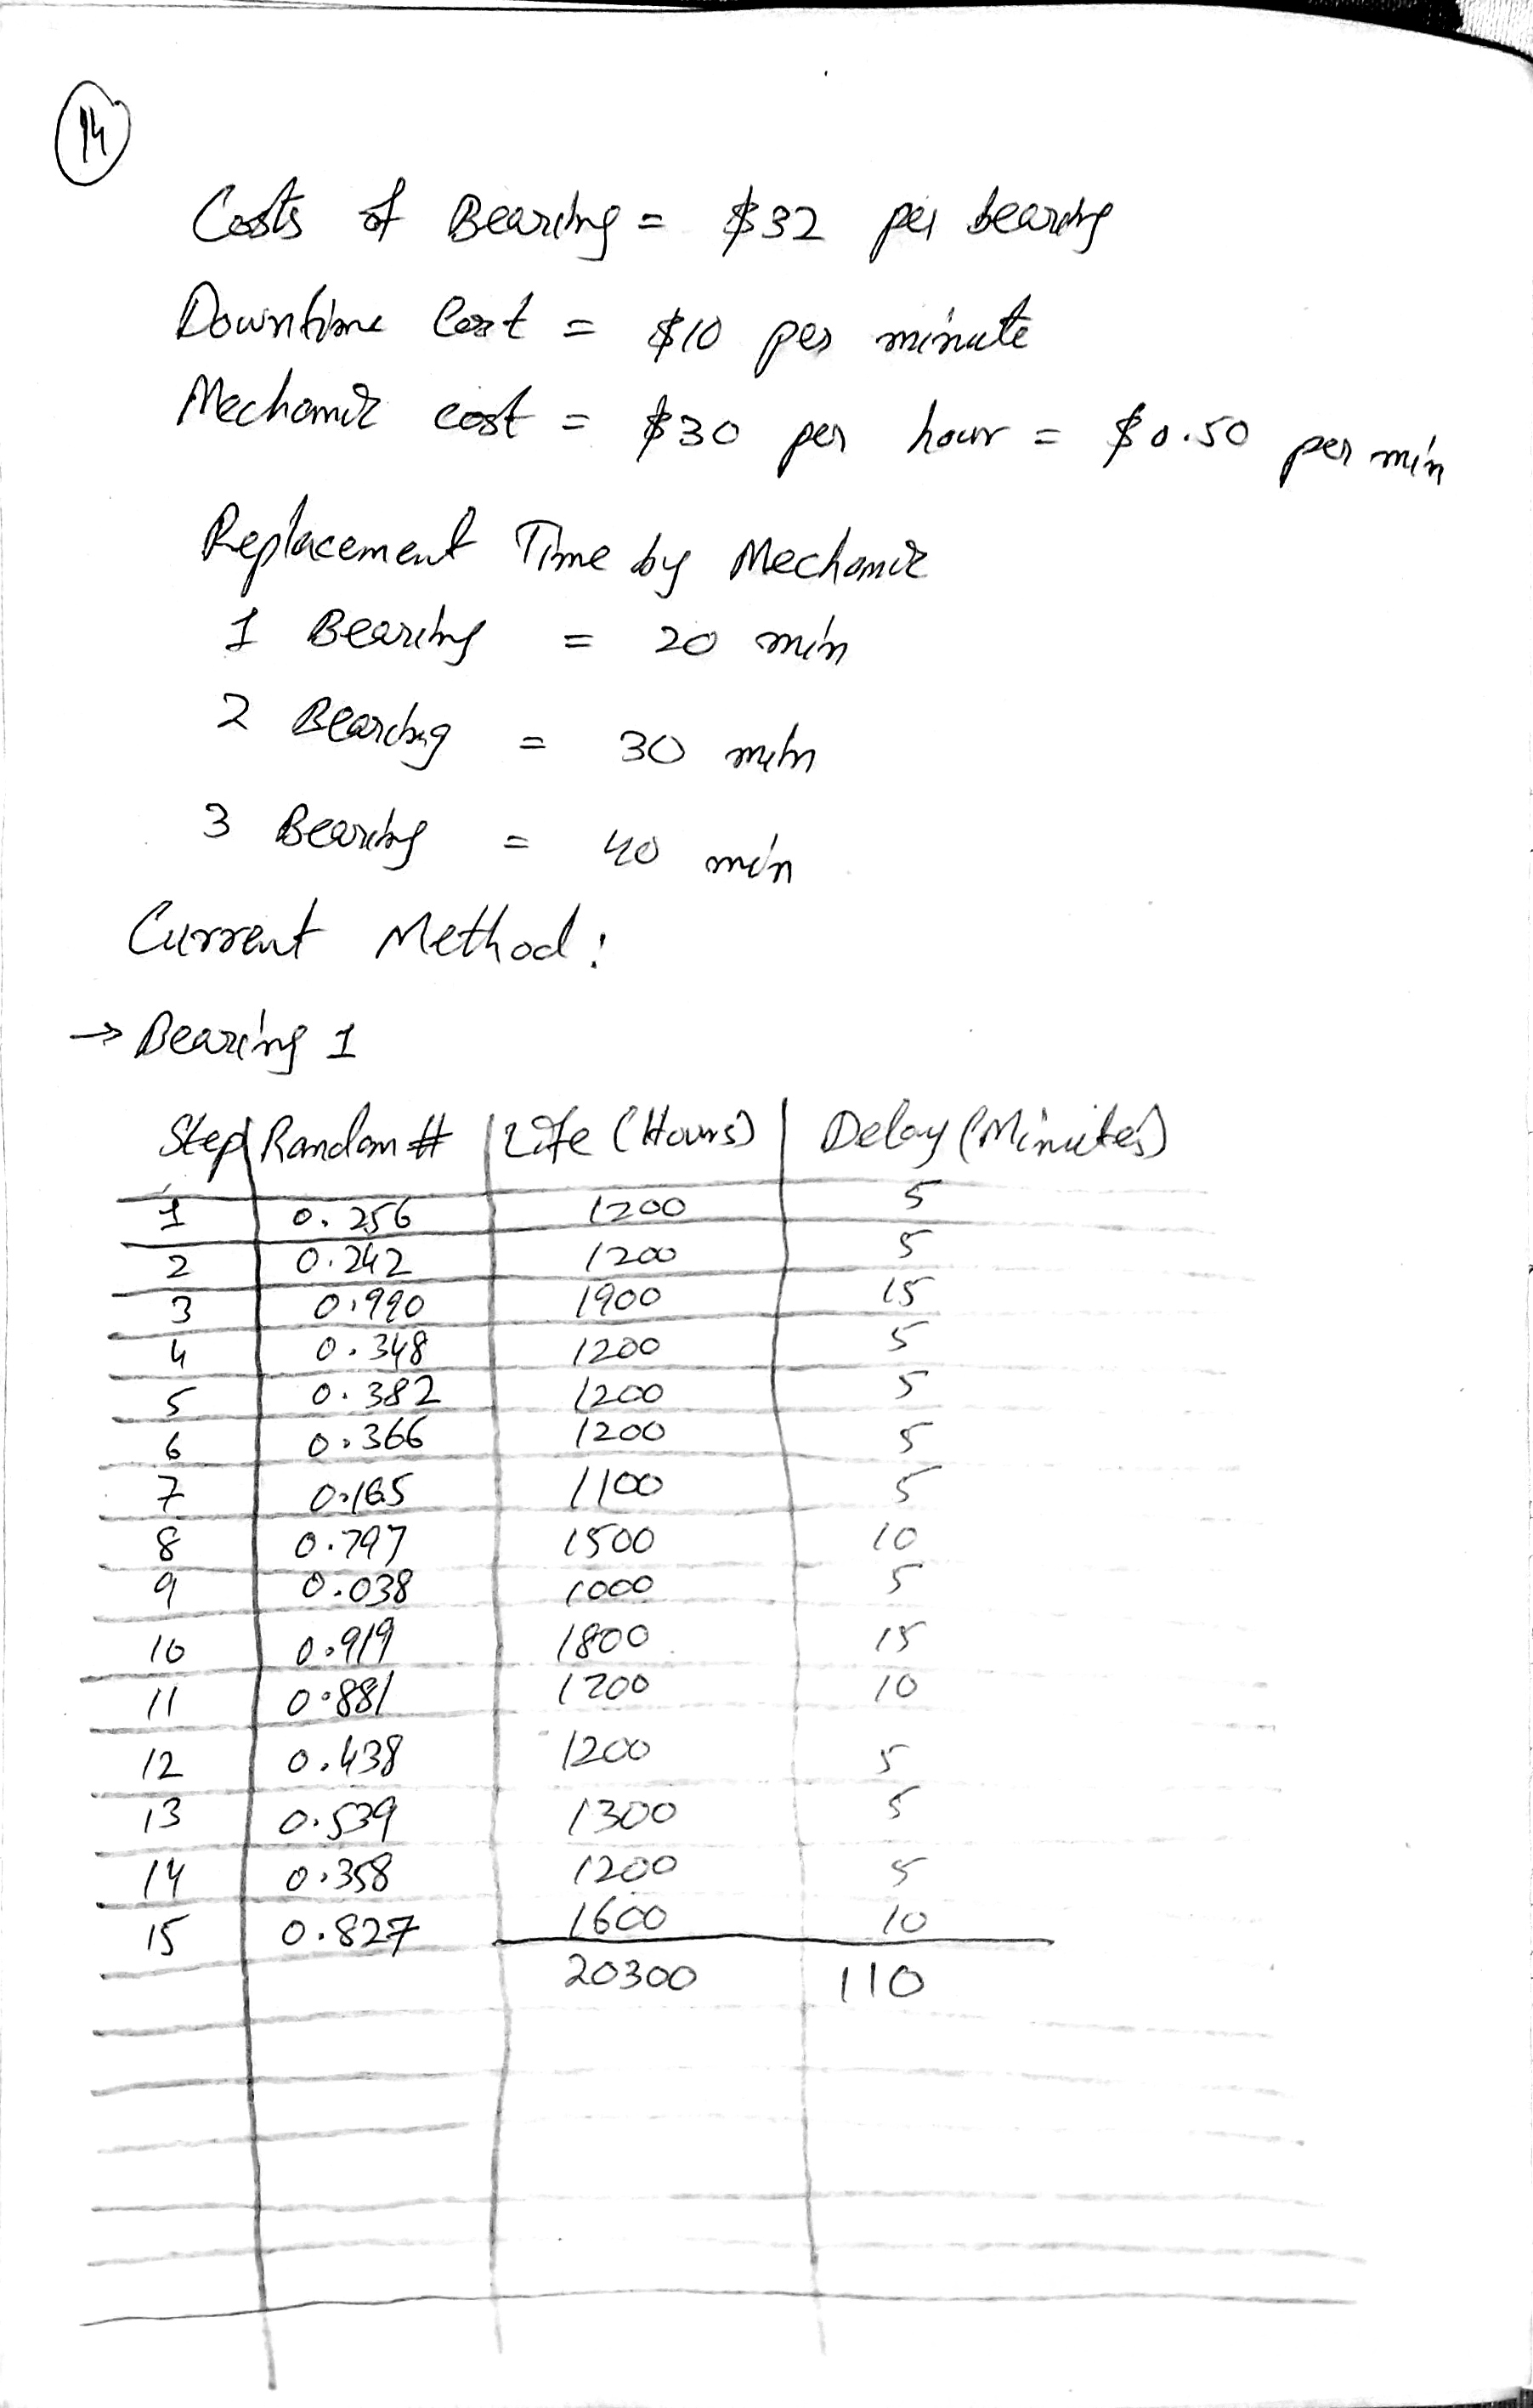 14
Costs of Bearing = $32 per bearing
Downtime Cost = $10 per minute
Mechanic cost = $30 per hour = $0.50 per min
Replacement Time by Mechanic
1 Bearing = 20 min
2 Bearing = 30 min
3 Bearing = 40 min
Current Method:
→ Bearing 1
Step Random # Life (Hours) Delay (Minutes)
1 0.256 1200 5
2 0.242 1200 5
3 0.990 1900 15
4 0.348 1200 5
5 0.382 1200 5
6 0.366 1200 5
7 0.165 1100 5
8 0.797 1500 10
9 0.038 1000 5
10 0.919 1800 15
11 0.881 1700 10
12 0.438 1200 5
13 0.539 1300 5
14 0.358 1200 5
15 0.827 1600 10
20300 110